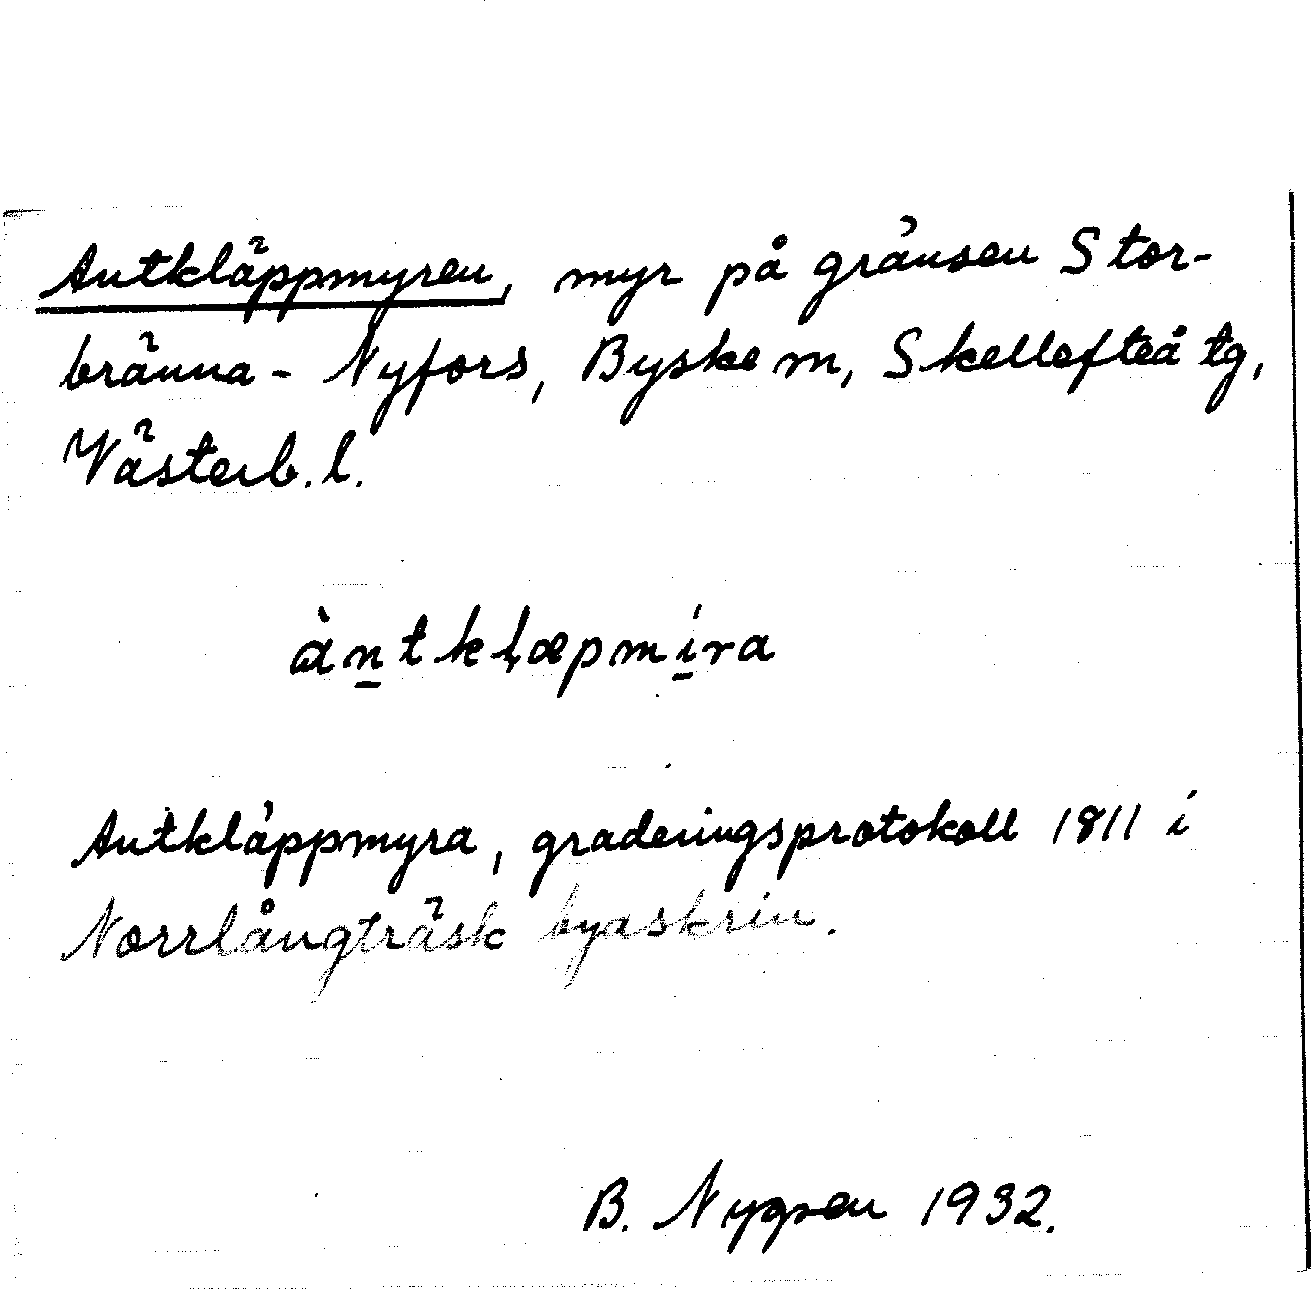 Antkläppmyren, myr på gränsen Stor-
bränna - Nyfors, Byske m, Skellefteå tg,
Västerb. l.
àn̲tkļæpmi̲ra
Antkläppmyra, graderingsprotokoll 1811 i
Norrlångträsk byaskrin.
B. Nygren 1932.